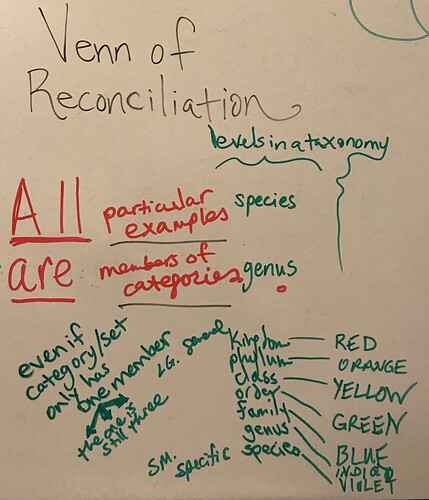 Venn of
Reconciliation
levels in a taxonomy
All particular
examples species
are members of
categories genus
even if
category/set
only has
one member
the one is
still three
LG. general
kingdom RED
phyllum ORANGE
class YELLOW
order GREEN
family BLUE
genus INDIGO
SM. specific species VIOLET